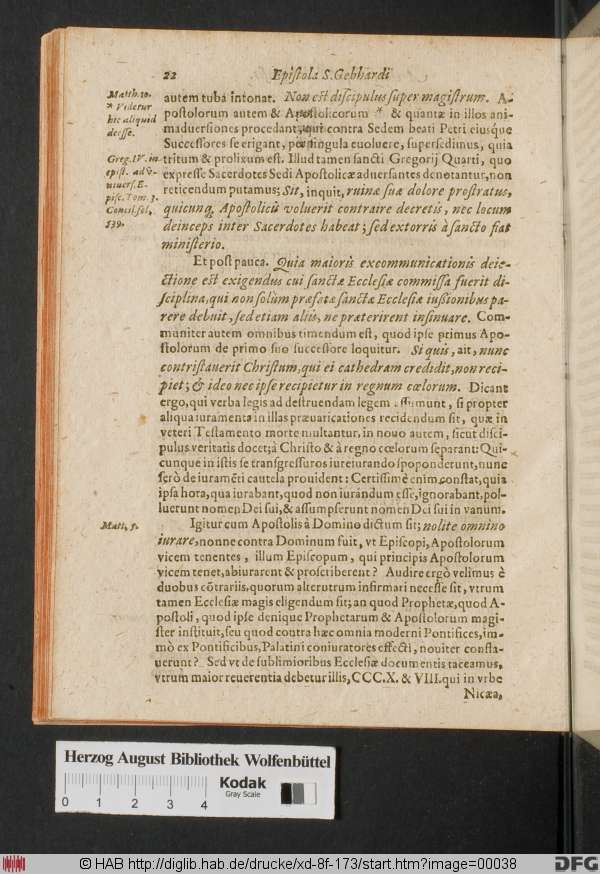 22 Epistola S. Gebhardi
Matth. 10.
* Videtur
hic aliquid
deesse.
Greg. IV. in
epist. ad v-
niuers. E-
pisc. Tom. 3.
Concil. fol.
539.
autem tuba intonat. Non est discipulus super magistrum. A-
postolorum autem & Apostolicorum * & quantæ in illos ani-
maduersiones procedant, qui contra Sedem beati Petri eiusque
Successores se erigant, per singula euoluere, supersedimus, quia
tritum & prolixum est. Illud tamen sancti Gregorij Quarti, quo
expresse Sacerdotes Sedi Apostolicæ aduersantes denotantur, non
reticendum putamus; Sit, inquit, ruinæ suæ dolore prostratus,
quicunq; Apostolicū voluerit contraire decretis, nec locum
deinceps inter Sacerdotes habeat; sed extorris à sancto fiat
ministerio.
Et post pauca. Quia maioris excommunicationis deie-
ctione est exigendus cui sanctæ Ecclesiæ commissa fuerit di-
sciplina, qui non solùm præfatæ sanctæ Ecclesiæ iußionibus pa-
rere debuit, sed etiam aliis, ne præterirent insinuare. Com-
muniter autem omnibus timendum est, quod ipse primus Apo-
stolorum de primo suo successore loquitur. Si quis, ait, nunc
contristauerit Christum, qui ei cathedram credidit, non reci-
piet; & ideo nec ipse recipietur in regnum cœlorum. Dicant
ergo, qui verba legis ad destruendam legem assumunt, si propter
aliqua iuramenta in illas præuaricationes recidendum sit, quæ in
veteri Testamento morte multantur, in nouo autem, sicut disci-
pulus veritatis docet; à Christo & à regno cœlorum separant: Qui-
cunque in istis se transgressuros iureiurando spoponderunt, nunc
serò de iuramēti cautela prouident: Certissimè enim constat, quia
ipsa hora, qua iurabant, quod non iurandum esse, ignorabant, pol-
luerunt nomen Dei sui, & assumpserunt nomen Dei in vanum.
Matt. 5.
Igitur cum Apostolis à Domino dictum sit; nolite omnino
iurare, nonne contra Dominum fuit, vt Episcopi, Apostolorum
vicem tenentes, illum Episcopum, qui principis Apostolorum
vicem tenet, abiurarent & proscriberent? Audire ergò velimus è
duobus cōtrariis, quorum alterutrum infirmari necesse sit, vtrum
tamen Ecclesiæ magis eligendum sit; an quod Prophetæ, quod A-
postoli, quod ipse denique Prophetarum & Apostolorum magi-
ster instituit, seu quod contra hæc omnia moderni Pontifices, im-
mò ex Pontificibus, Palatini coniuratores effecti, nouiter consta-
uerunt? Sed vt de sublimioribus Ecclesiæ documentis taceamus,
vtrum maior reuerentia debetur illis, CCC.X. & VIII. qui in vrbe
Nicæa,
Herzog August Bibliothek Wolfenbüttel
0 1 2 3 4
Kodak
Gray Scale
© HAB http://diglib.hab.de/drucke/xd-8f-173/start.htm?image=00038
DFG